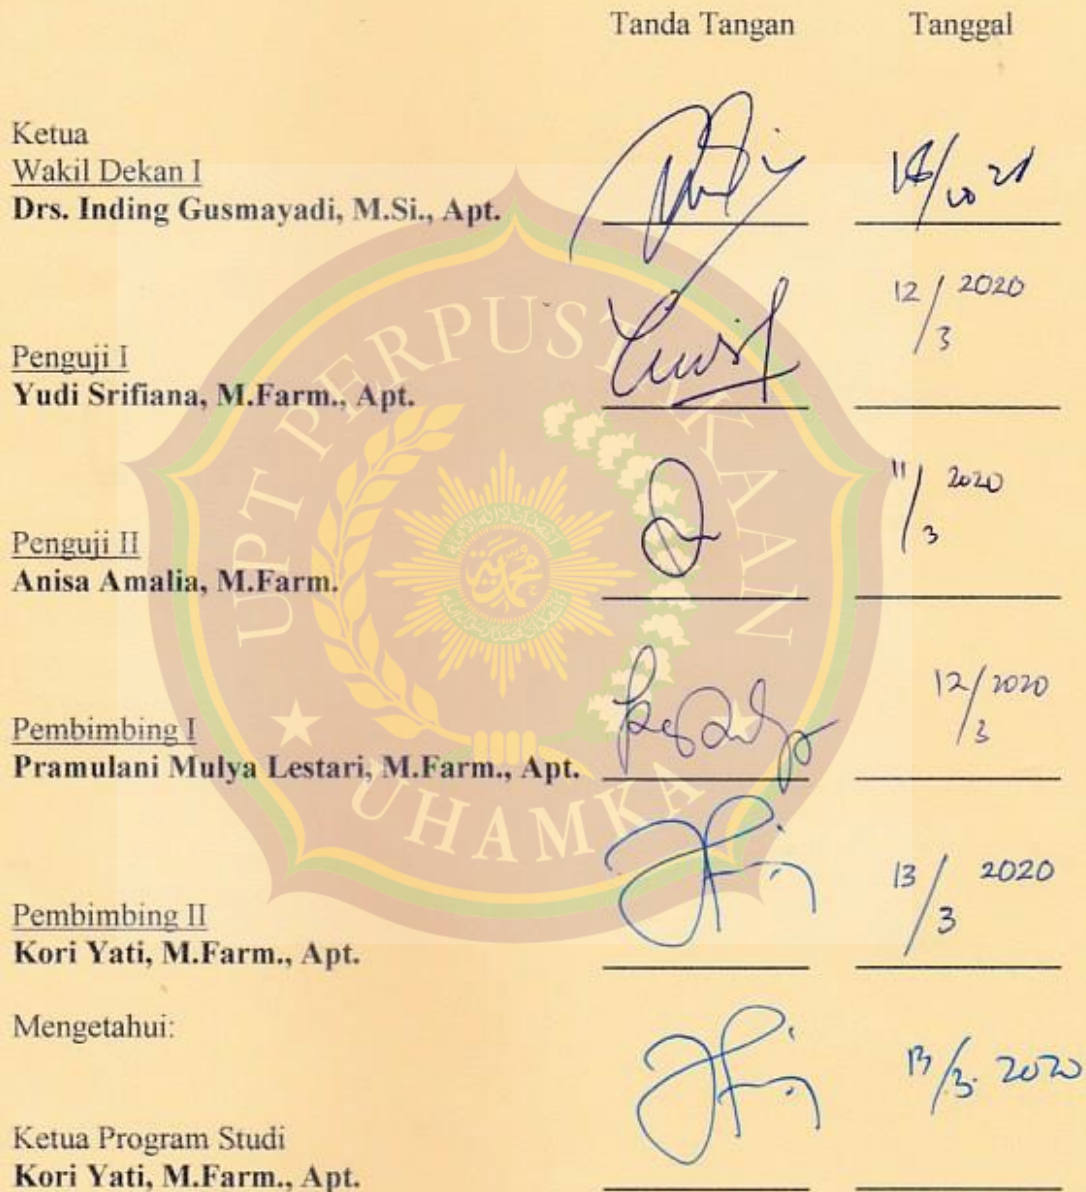 Tanda Tangan Tanggal
Ketua
Wakil Dekan I
Drs. Inding Gusmayadi, M.Si., Apt.
12/3 2020
Penguji I
Yudi Srifiana, M.Farm., Apt.
11/3 2020
Penguji II
Anisa Amalia, M.Farm.
12/3 2020
Pembimbing I
Pramulani Mulya Lestari, M.Farm., Apt.
13/3 2020
Pembimbing II
Kori Yati, M.Farm., Apt.
Mengetahui:
13/3. 2020
Ketua Program Studi
Kori Yati, M.Farm., Apt.
UPT PERPUSTAKAAN
UHAMKA